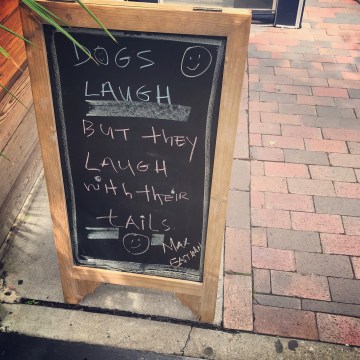 DOGS
LAUGH
BUT they
LAUGH
with their
tails.
MAX
EASTMAN